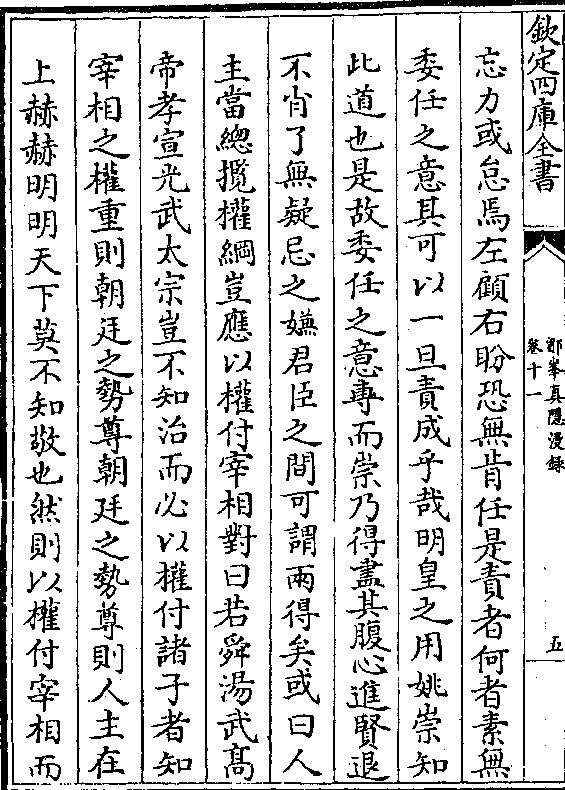 欽定四庫全書
鄮峯真隱漫錄
卷十一
五
忘力或怠焉左顧右盼恐無肯任是責者何者素無
委任之意其可以一旦責成乎哉明皇之用姚崇知
此道也是故委任之意專而崇乃得盡其腹心進賢退
不肖了無疑忌之嫌君臣之間可謂兩得矣或曰人
主當總攬權綱豈應以權付宰相對曰若舜湯武髙
帝孝宣光武太宗豈不知治而必以權付諸子者知
宰相之權重則朝廷之勢尊朝廷之勢尊則人主在
上赫赫明明天下莫不知敬也然則以權付宰相而